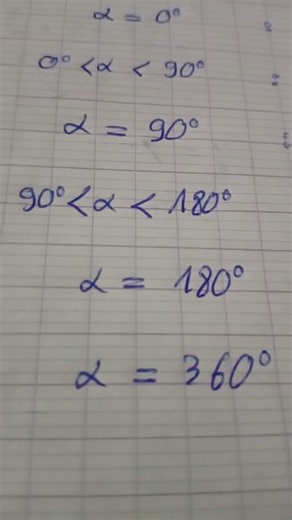 α = 0° :
0° < α < 90° :
α = 90° :
90° < α < 180°
α = 180°
α = 360°